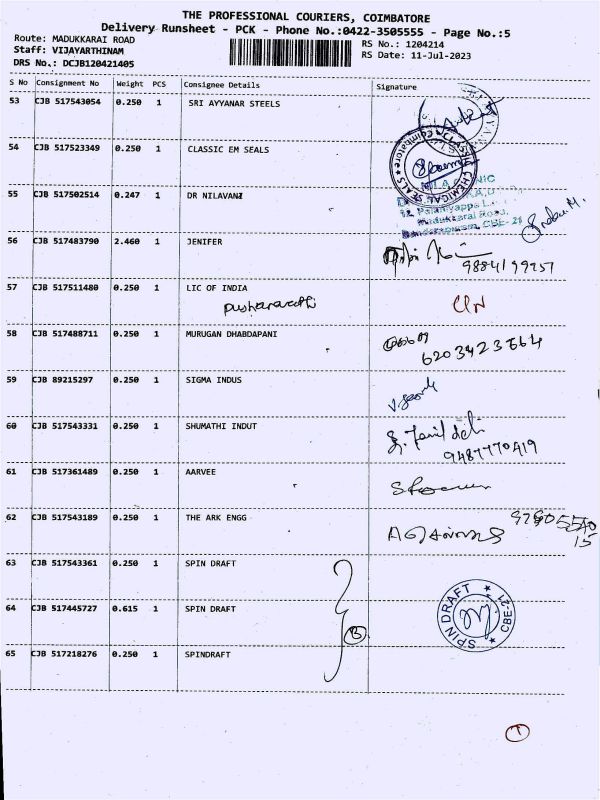 THE PROFESSIONAL COURIERS, COIMBATORE
Delivery Runsheet - PCK - Phone No.:0422-3505555 - Page No.:5
Route: MADUKKARAI ROAD
RS No.: 1204214
Staff: VIJAYARTHINAM
RS Date: 11-Jul-2023
DRS No.: DCJB120421405
S No Consignment No Weight PCS Consignee Details Signature
53 CJB 517543054 0.250 1 SRI AYYANAR STEELS
54 CJB 517523349 0.250 1 CLASSIC EM SEALS
CHEMICAL SEALS Coimbatore
55 CJB 517502514 0.247 1 DR NILAVANI
12, Palaniyappa
Madukkarai Road,
CBE-21
56 CJB 517483790 2.460 1 JENIFER
57 CJB 517511480 0.250 1 LIC OF INDIA
58 CJB 517488711 0.250 1 MURUGAN DHABDAPANI
6203423564
59 CJB 89215297 0.250 1 SIGMA INDUS
60 CJB 517543331 0.250 1 SHUMATHI INDUT
9487770419
61 CJB 517361489 0.250 1 AARVEE
62 CJB 517543189 0.250 1 THE ARK ENGG
63 CJB 517543361 0.250 1 SPIN DRAFT
64 CJB 517445727 0.615 1 SPIN DRAFT
3
SPIN DRAFT CBE-21
65 CJB 517218276 0.250 1 SPINDRAFT